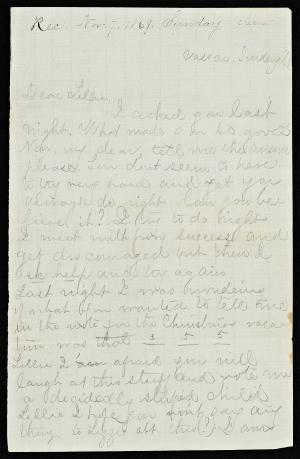 Rec. Nov. 7, 1869. Sunday
Vassar. Sunday
Dear Lillie,
I asked you last
night, "What made you so good"
Now, my dear, tell me the
please. You don't seem to have
to try very hard and yet you
always do right. Can you be-
lieve it? I try to do right
I meet with few success and
get discouraged but then I
ask help and try again
Last night I was wondering
if what you wanted to tell me
in the note for the Christmas vaca
tion was that 3 5 5
Lillie I am afraid you will
laugh at this stuff and vote me
a decidedly stupid child
Lillie I hope you wont say any
thing to Lizzie abt this? I am